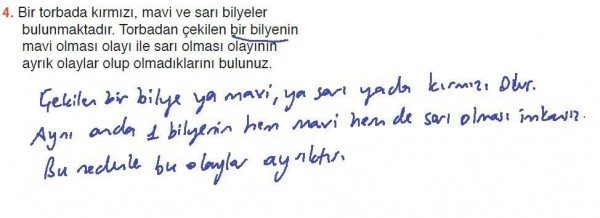 4. Bir torbada kırmızı, mavi ve sarı bilyeler
bulunmaktadır. Torbadan çekilen bir bilyenin
mavi olması olayı ile sarı olması olayının
ayrık olaylar olup olmadıklarını bulunuz.
Çekilen bir bilye ya mavi, ya sarı yada kırmızı olur.
Aynı anda 1 bilyenin hem mavi hem de sarı olması imkansız.
Bu nedenle bu olaylar ayrıktır.